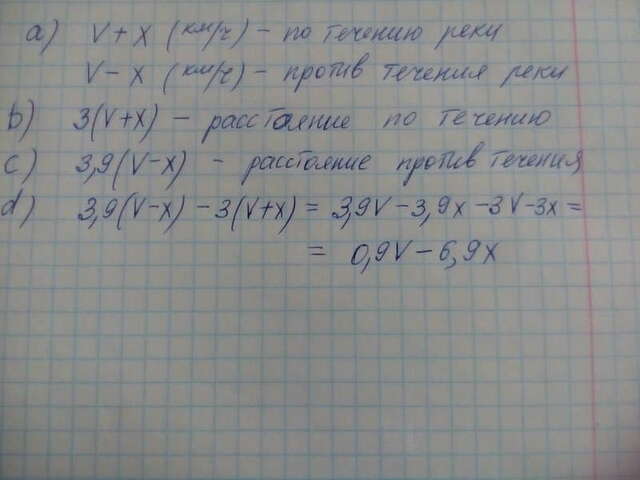 a) V+x (км/ч) – по течению реки
V–x (км/ч) – против течения реки
b) 3(V+x) – расстояние по течению
c) 3,9(V–x) – расстояние против течения
d) 3,9(V–x) – 3(V+x) = 3,9V – 3,9x – 3V – 3x =
= 0,9V – 6,9x